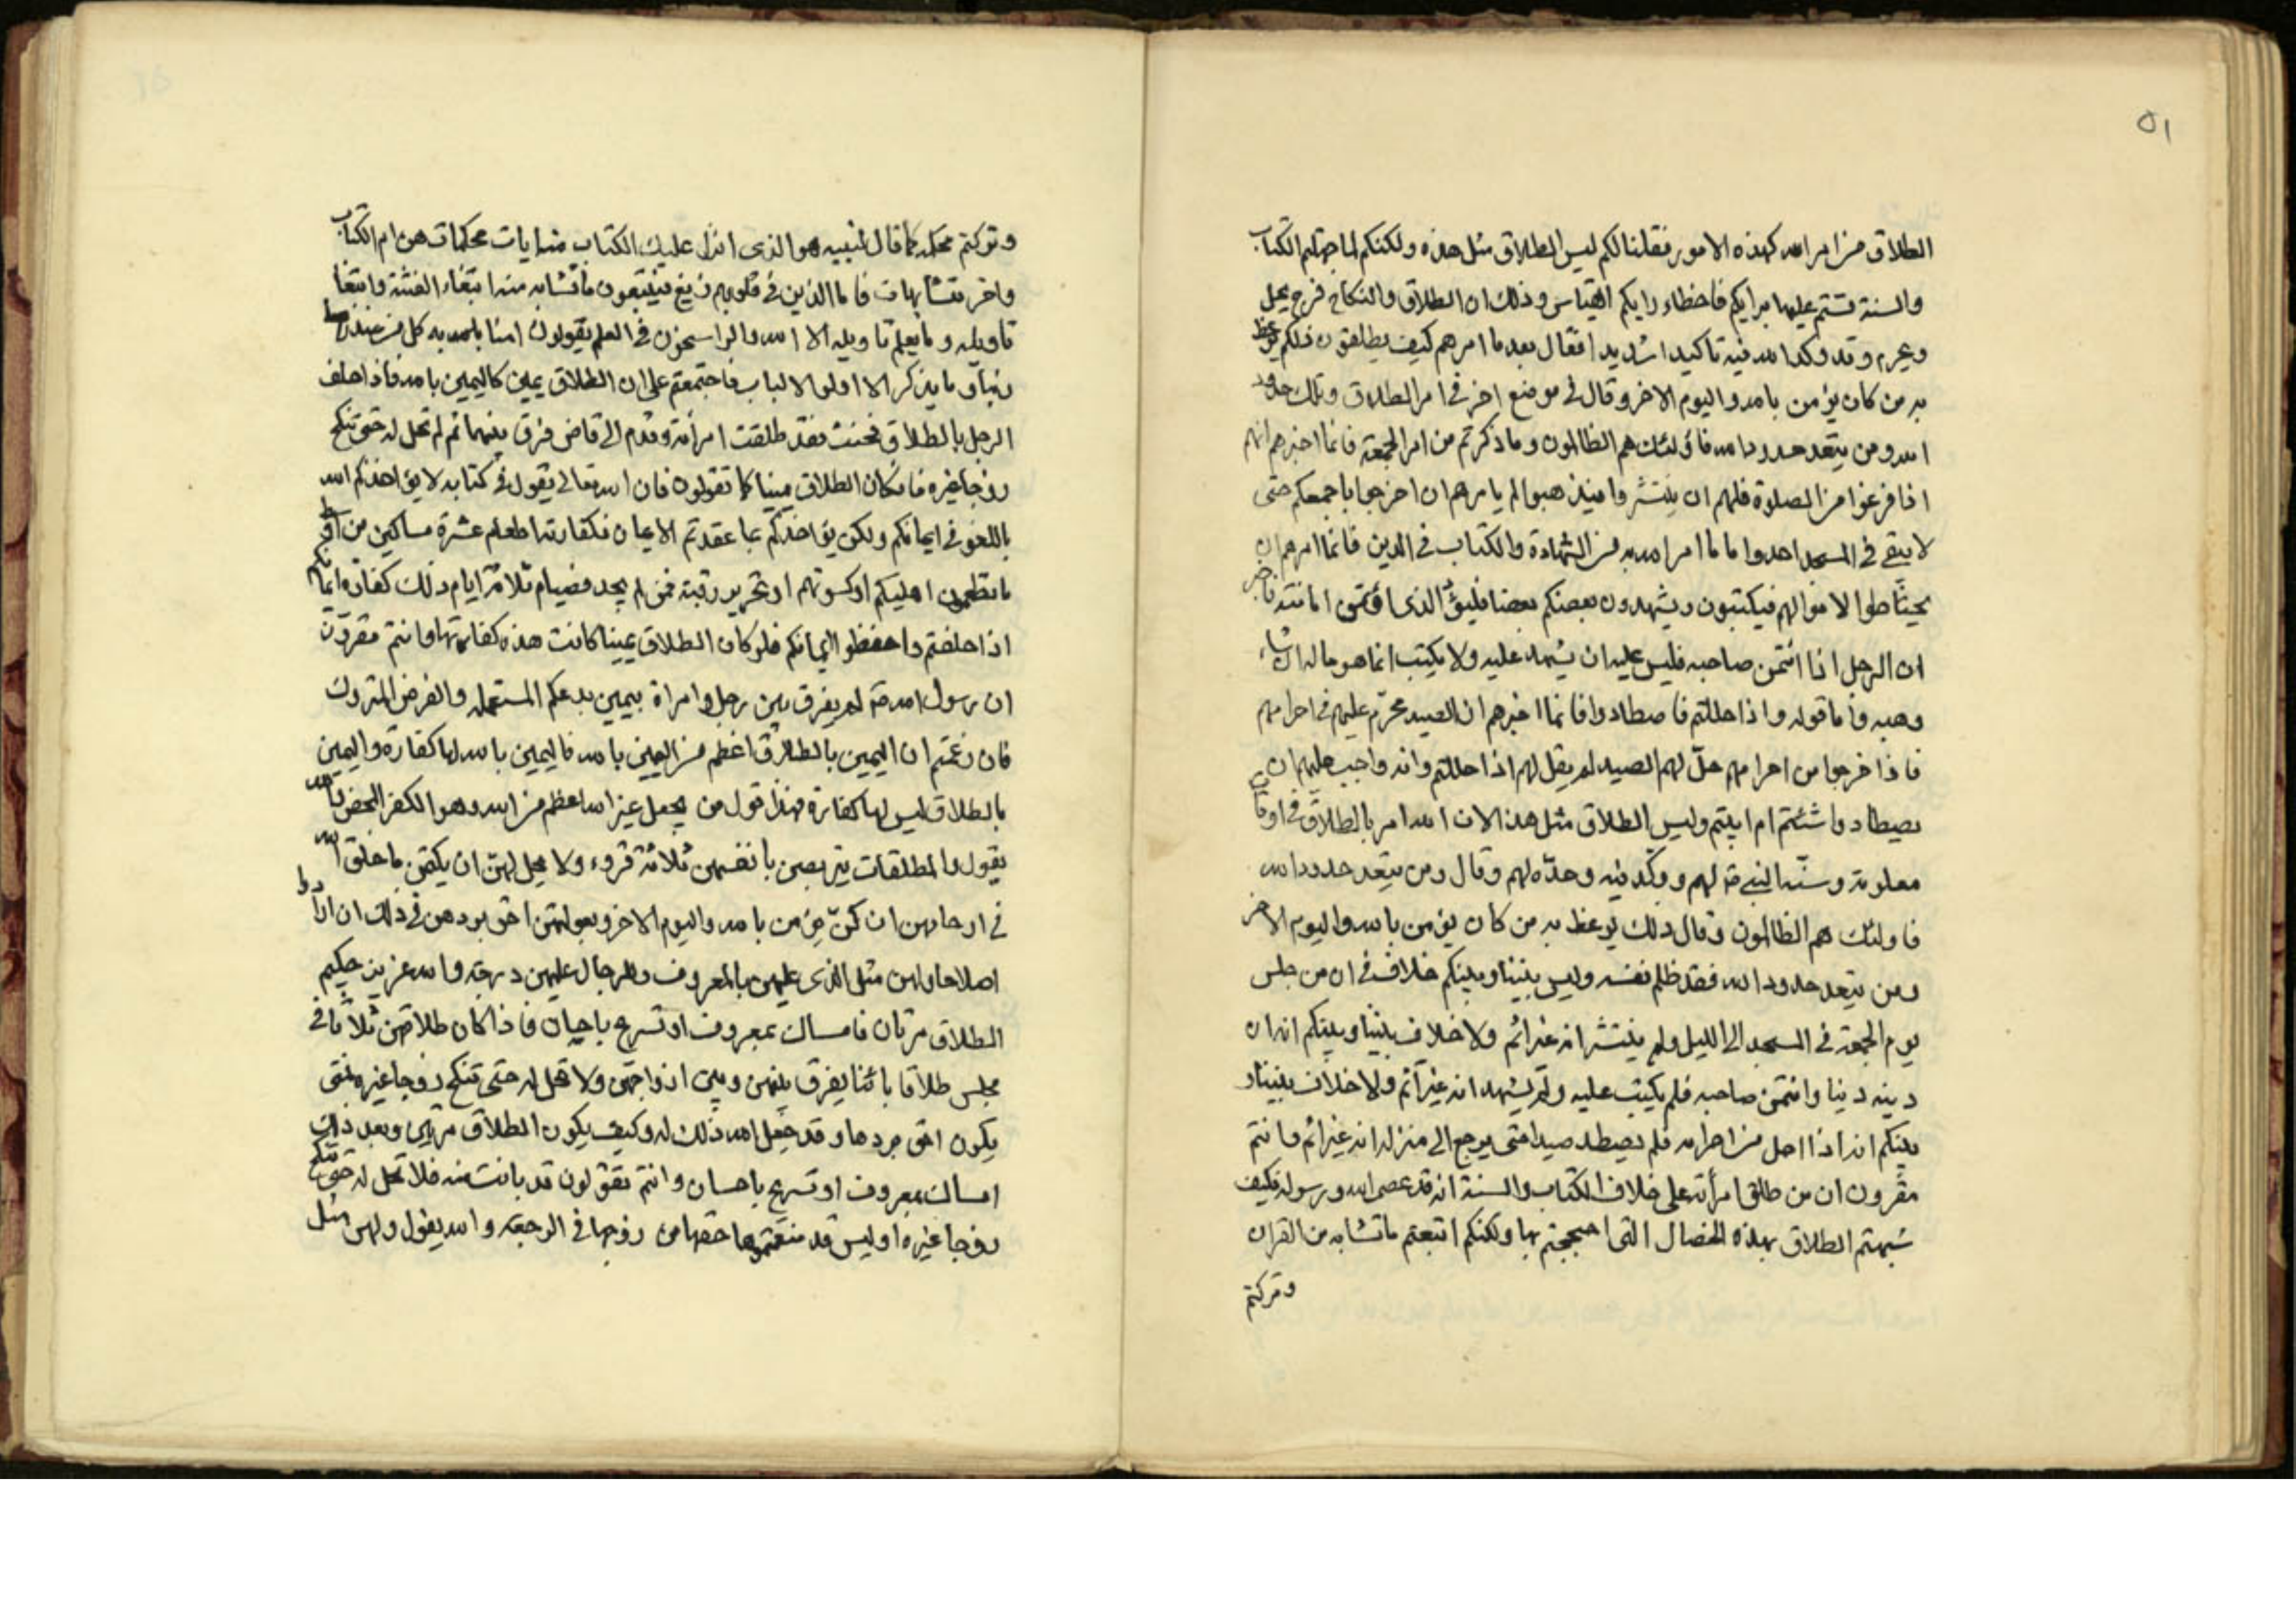 ٥١
الطلاق من امر الله كهذه الامور فقلنا لكم ليس الطلاق مثل هذه ولكنكم لما جهلتم الكتاب
والسنة قستم عليها برايكم فاخطاء رايكم القياس وذلك ان الطلاق والنكاح فرج يحل
ويحرم وقد وكد الله فيه تاكيدا شديدا فقال بعد ما امرهم كيف يطلقون ذلكم يوعظ
به من كان يؤمن بالله واليوم الاخر وقال في موضع اخر في امر الطلاق وتلك حدود
الله ومن يتعد حدود الله فاولئك هم الظالمون وما ذكرتم من امر الجمعة فانما اخبرهم انهم
اذا فرغوا من الصلوة فلهم ان ينتشروا فيذهبوا لم يامرهم ان اخرجوا باجمعكم حتى
لا يبقى في المسجد احد واما ما امر الله به من الشهادة والكتاب في الدين فانما امرهم ان
يحتاطوا لاموالهم فيكتبون ويشهدون بعضكم بعضا فليؤد الذي اؤتمن امانته فاخبر
ان الرجل اذا ائتمن صاحبه فليس عليه ان يشهد عليه ولا يكتب انما هو ماله ان شاء
وهبه واما قوله واذا حللتم فاصطادوا فانما اخبرهم ان الصيد محرم عليهم في احرامهم
فاذا خرجوا من احرامهم حل لهم الصيد لم يقل لهم اذا حللتم وانه واجب عليهم ان
يصيطادوا شئتم ام ابيتم وليس الطلاق مثل هذ الان الله امر بالطلاق في اوقات
معلومة وسنه النبي صه لهم ووكد فيه وحده لهم وقال ومن يتعد حدود الله
فاولئك هم الظالمون وقال ذلك يوعظ به من كان يؤمن بالله واليوم الاخر
ومن يتعد حدود الله فقد ظلم نفسه وليس بيننا وبينكم خلاف في ان من جلس
يوم الجمعة في المسجد الى الليل ولم ينتشر انه غير اثم ولا خلاف بيننا وبينكم انه ان
دينه دينا وائتمن صاحبه فلم يكتب عليه ولم يشهد انه غير آثم ولا خلاف بيننا و
بينكم انه اذا احل من احرامه فلم يصطد صيدا حتى يرجع الى منزله انه غير اثم وانتم
مقرون ان من طلق امرأته على خلاف الكتاب والسنة انه قد عصى الله ورسوله فكيف
شبهتم الطلاق بهذه الخصال التي احتججتم بها ولكنكم اتبعتم ما تشابه من القران
وتركتم
وتركتم محكمه كما قال لنبيه هو الذي انزل عليك الكتاب منه ايات محكمات هن ام الكتاب
واخر متشابهات فاما الذين في قلوبهم زيغ فيتبعون ما تشابه منه ابتغاء الفتنة وابتغا
تاويله وما يعلم تاويله الا الله والراسخون في العلم يقولون امنا به كل من عند
ربنا وما يذكر الا اولوا الالباب فاجتمعتم على ان الطلاق يمين كاليمين بالله فاذا حلف
الرجل بالطلاق فحنث فقد طلقت امرأته وقدم الى قاض فرق بينهما ثم لم تحل له حتى تنكح
زوجا غيره فان كان الطلاق يمينا كما تقولون فان الله تعالى يقول في كتابه لا يؤاخذكم الله
باللغو في ايمانكم ولكن يؤاخذكم بما عقدتم الايمان فكفارته اطعام عشرة مساكين من اوسط
ما تطعمون اهليكم او كسوتهم او تحرير رقبة فمن لم يجد فصيام ثلاثة ايام ذلك كفارة ايمانكم
اذا حلفتم واحفظوا ايمانكم فلو كان الطلاق يمينا كانت هذه كفارتها وانتم مقرون
ان رسول الله صه لم يفرق بين رجل وامراة بيمين بدعكم المستعمله والفرض المتروك
فان زعمتم ان اليمين بالطلاق اعظم من اليمين بالله فاليمين بالله لها كفارة واليمين
بالطلاق ليس لها كفارة فهذا قول من يجعل غير الله اعظم من الله وهو الكفر المحض والله
يقول والمطلقات يتربصن بانفسهن ثلاثة قروء ولا يحل لهن ان يكتمن ما خلق الله
في ارحامهن ان كن يؤمن بالله واليوم الاخر وبعولتهن احق بردهن في ذلك ان ارادوا
اصلاحا ولهن مثل الذي عليهن بالمعروف وللرجال عليهن درجة والله عزيز حكيم
الطلاق مرتان فامساك بمعروف او تسريح باحسان فاذا كان طلاقهن ثلاثا في
مجلس طلاقا بائنا يفرق بينهن وبين ازواجهن ولا تحل له حتى تنكح زوجا غيره فمتى
يكون احق بردها وقد جعل الله ذلك له وكيف يكون الطلاق مرتين وبعد ذلك
امساك بمعروف او تسريح باحسان وانتم تقولون قد بانت منه فلا تحل له حتى تنكح
زوجا غيره اوليس قد منعتموها حقها من زوجها في الرجعة والله يقول ولهن مثل